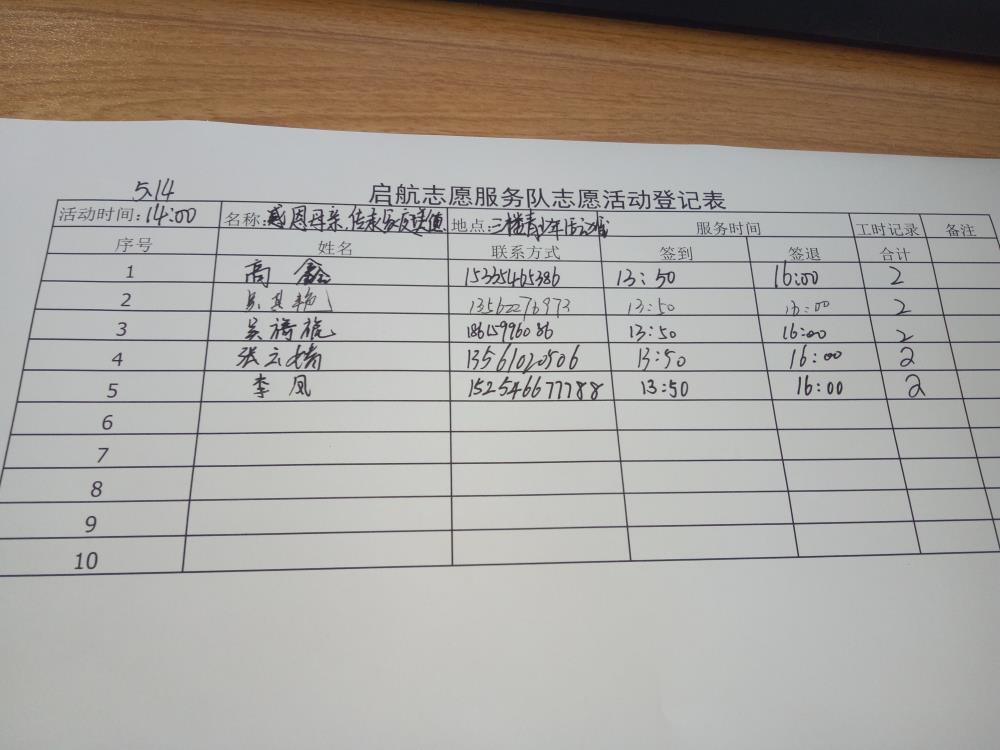 5.14
启航志愿服务队志愿活动登记表
活动时间:14:00 名称:感恩母亲,传承家庭美德 地点:三楼青少年活动室 服务时间 工时记录 备注
序号 姓名 联系方式 签到 签退 合计
1 高鑫 15335465386 13:50 16:00 2
2 13562276973 13:50 16:00 2
3 吴 18615996086 13:50 16:00 2
4 张云 13561020506 13:50 16:00 2
5 李凤 152546677788 13:50 16:00 2
6
7
8
9
10